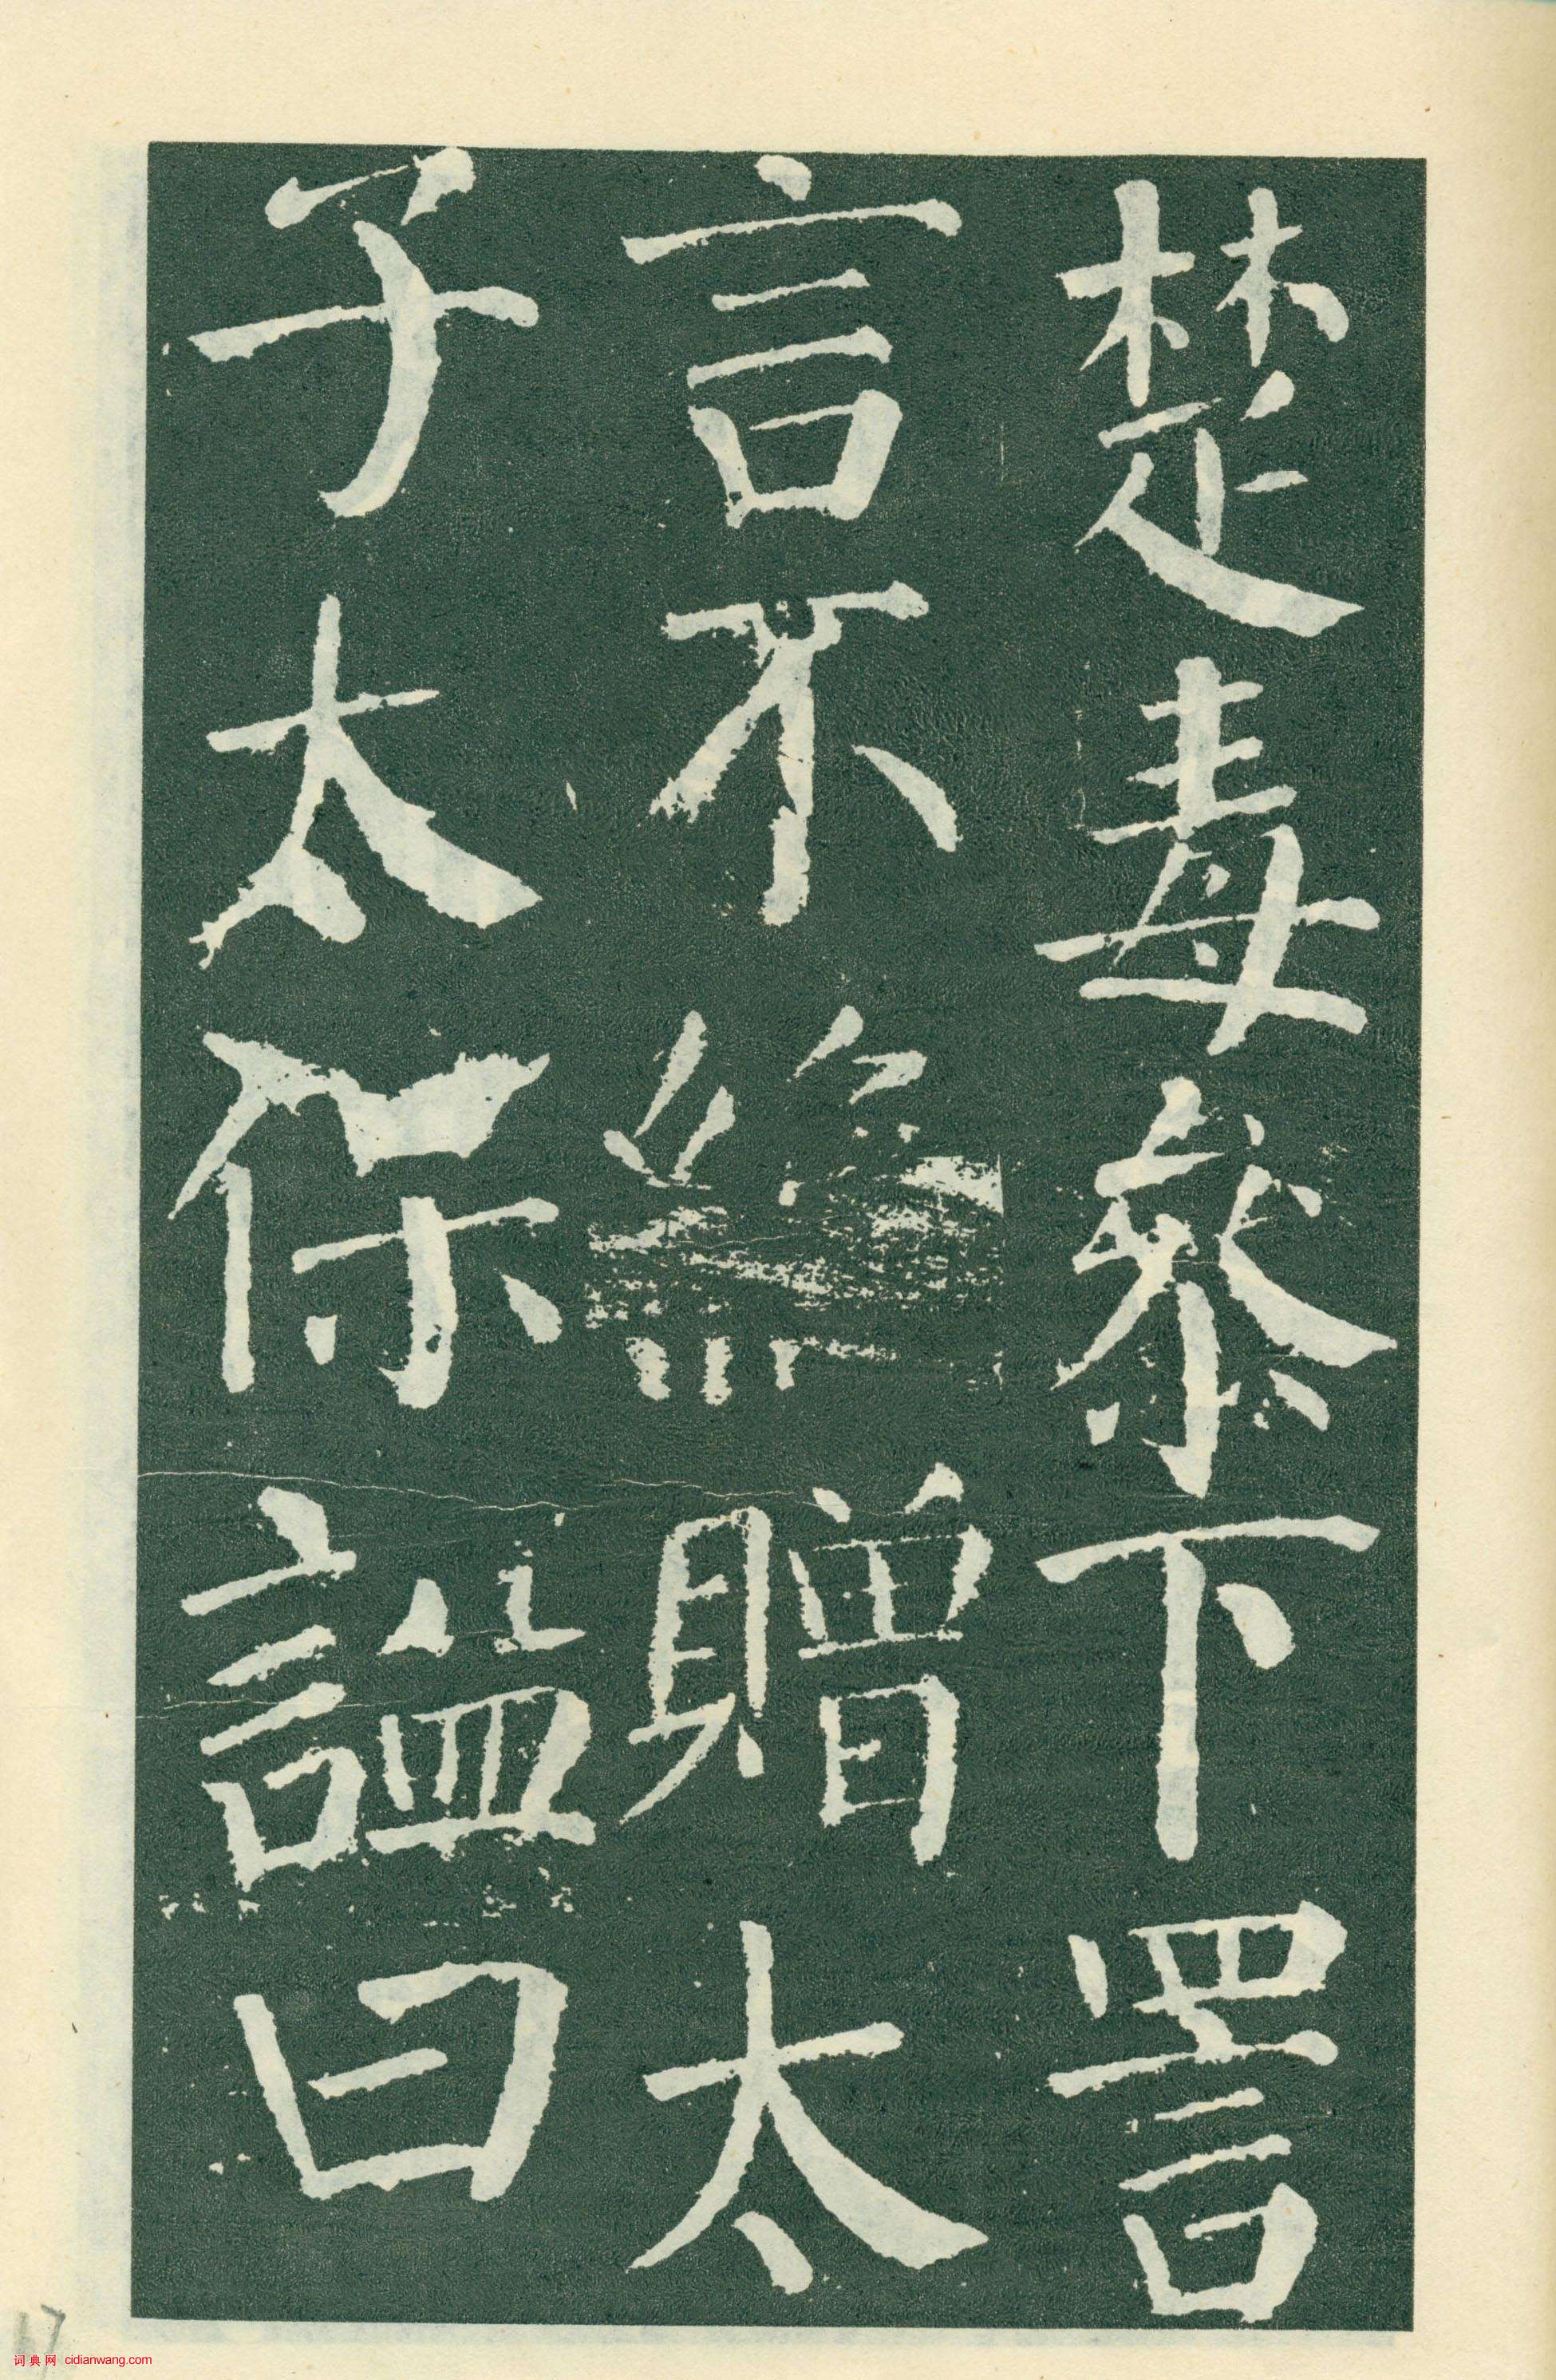 楚毒參下詈
言不絶贈太
子太保謚曰
17
词典网 cidianwang.com